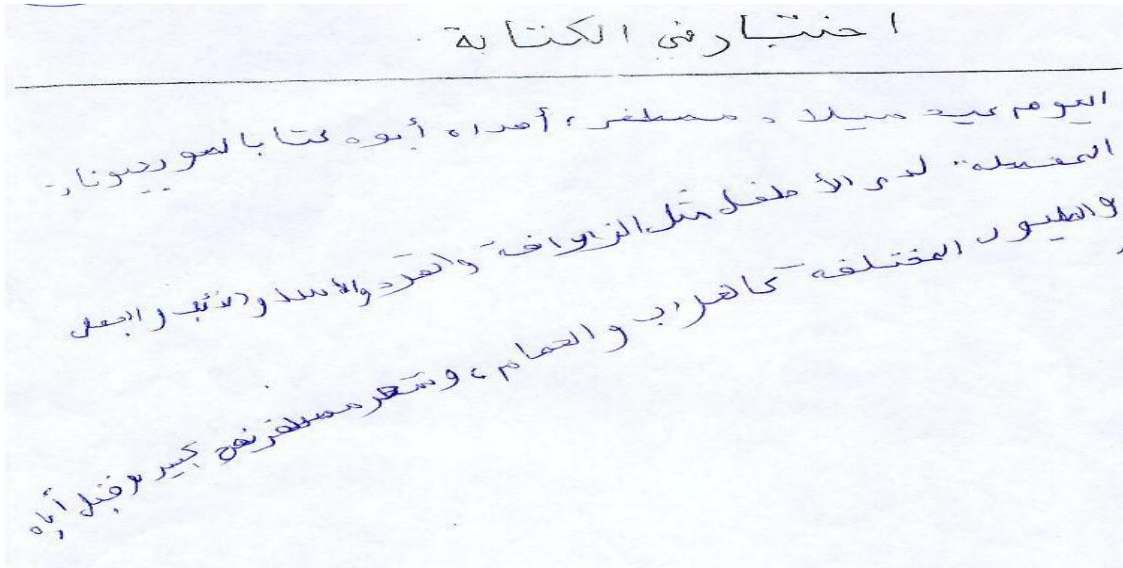 اختبار في الكتابة
اليوم عيد ميلاد مصطفى، أهداه أبوه كتابا لصور حيونات
المفضلة لدى الأطفل مثل الزراف والقرد والأسد و والجمل
والطيور المختلفة والحمام، وشعر مصطفى كبير وقبل أباه